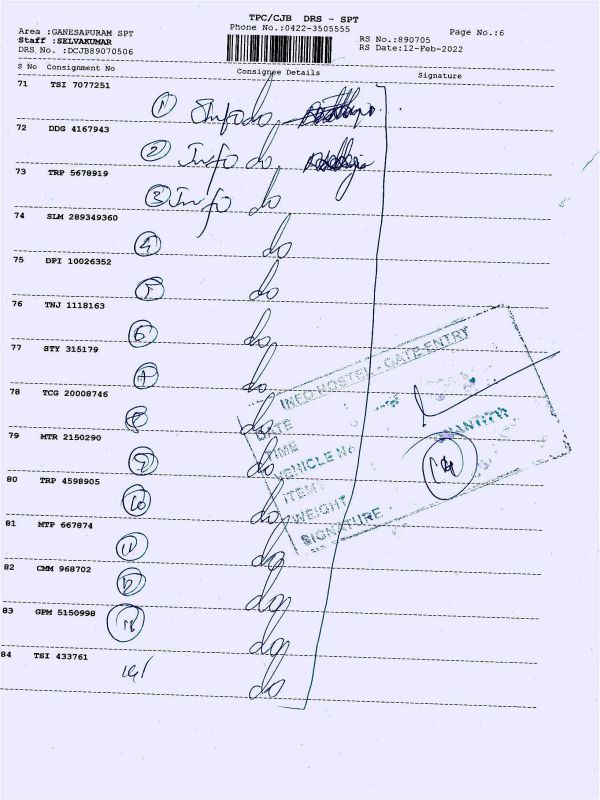 TPC/CJB DRS - SPT
Area :GANESAPURAM SPT Phone No.:0422-3505555 Page No.:6
Staff :SELVAKUMAR RS No.:890705
DRS. No. :DCJB89070506 RS Date:12-Feb-2022
S No Consignment No Consignee Details Signature
71 TSI 7077251
1 Info do
72 DDG 4167943
2 Info do
73 TRP 5678919
3 Info do
74 SLM 289349360
4 do
75 DPI 10026352
5 do
76 TNJ 1118163
6 do
77 STY 315179
7 do
78 TCG 20008746
8 do
79 MTR 2150290
9 do
80 TRP 4598905
10 do
81 MTP 667874
11 do
82 CMM 968702
12 do
83 GPM 5150998
13 do
84 TSI 433761
14 do
INFO HOSTEL - GATE ENTRY
DATE
TIME
VEHICLE No
ITEM QUANTITY
WEIGHT
SIGNATURE
14